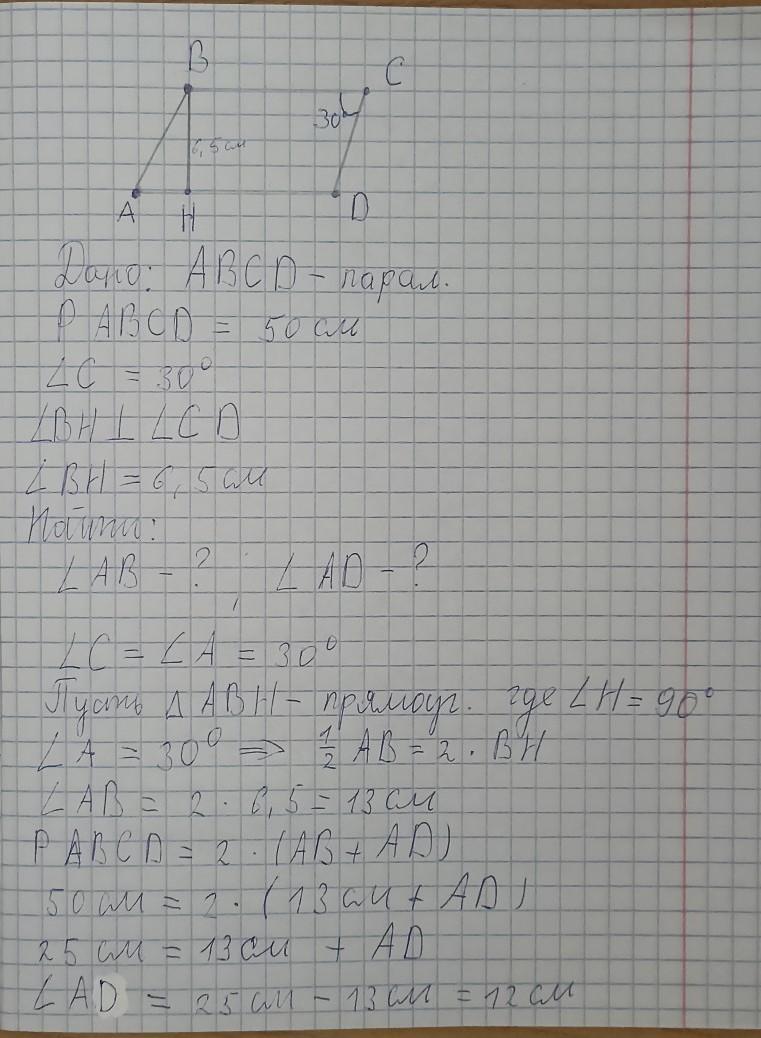 B
C
30
6,5 см
A
H
D
Дано: ABCD - парал.
P ABCD = 50 см
∠C = 30°
∠BH ⊥ ∠CD
∠BH = 6,5 см
Найти:
∠AB - ? ; ∠AD - ?
∠C = ∠A = 30°
Пусть △ ABH - прямоуг. где ∠H = 90°
∠A = 30° ⇒ 1/2 AB = 2 · BH
∠AB = 2 · 6,5 = 13 см
P ABCD = 2 · (AB + AD)
50 см = 2 · (13 см + AD)
25 см = 13 см + AD
∠AD = 25 см - 13 см = 12 см